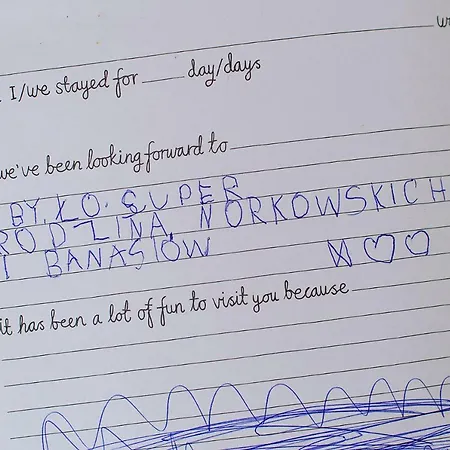 w
. I/we stayed for ____ day/days
we've been looking forward to
BYŁO SUPER
RODZINA NORKOWSKICH
I BANASIÓW
it has been a lot of fun to visit you because